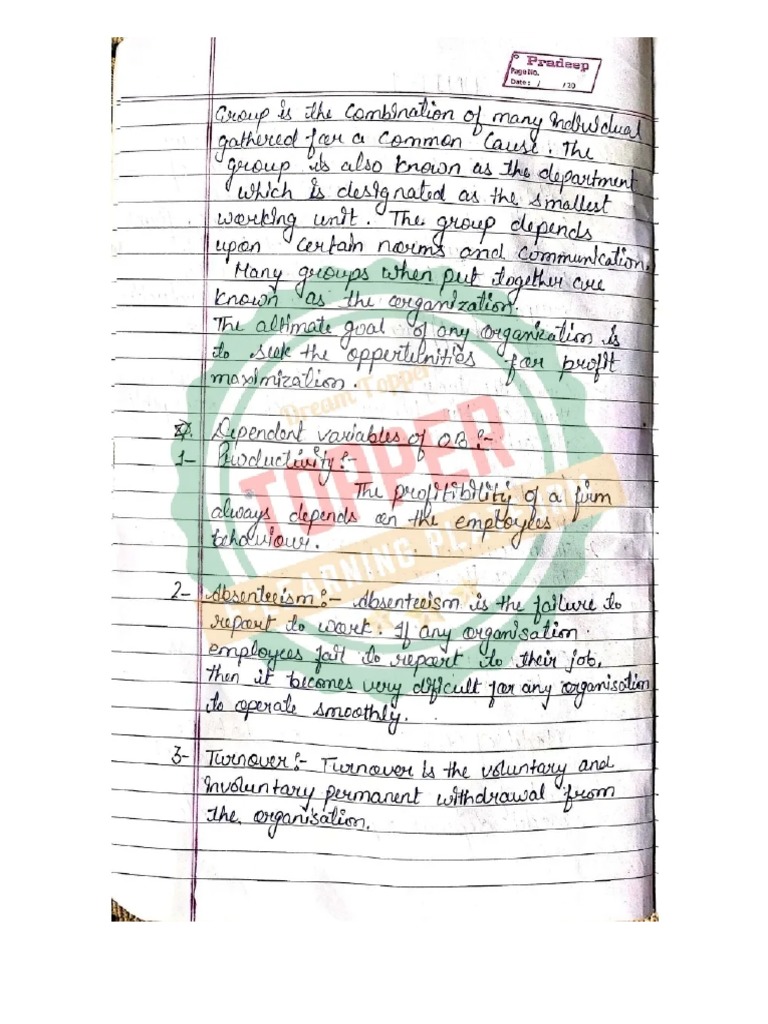 Pradeep
Page No.
Date: / /20
Group is the combination of many individual
gathered for a common cause. The
group is also known as the department
which is designated as the smallest
working unit. The group depends
upon certain norms and communication.
Many groups when put together are
known as the organization.
The altimate goal of any organization is
to seek the oppertutnities for profit
maximization.
Q. Dependent variables of OB:-
1- Productivity:-
The profitibility of a firm
always depends on the employees
behaviour.
2- Absenteeism:- Absenteeism is the failure to
report to work. If any organisation
employees fail to report to their job,
then it becomes very difficult for any organisation
to operate smoothly.
3- Turnover:- Turnover is the voluntary and
involuntary permanent withdrawal from
the organisation.
Dream Topper
TOPPER
E-LEARNING PLATFORM